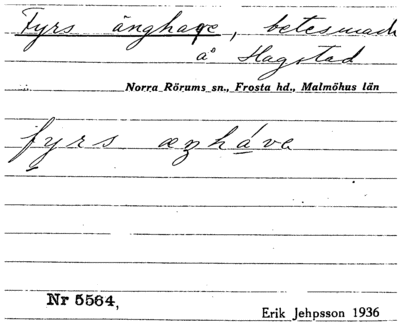 Fyrs änghage, betesmark
å Hagstad
Norra Rörums sn., Frosta hd., Malmöhus län
fyrs æŋháve
Nr 5564,
Erik Jehpsson 1936